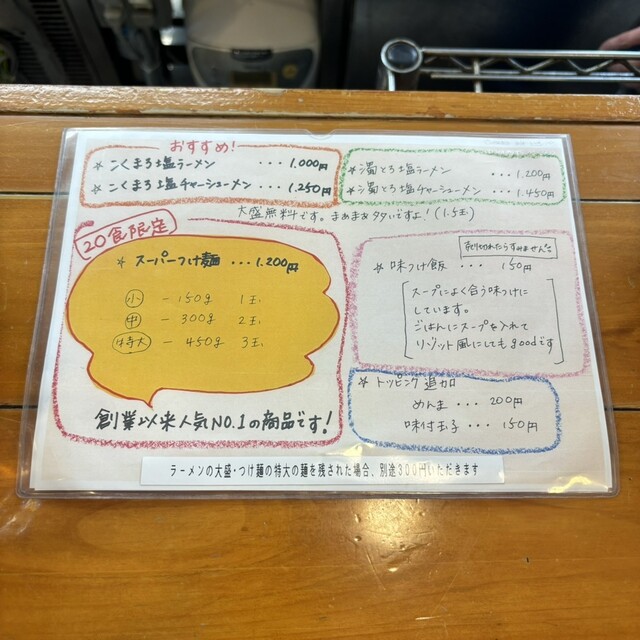 おすすめ!
☆ こくまろ塩ラーメン ・・・ 1.000円
☆ こくまろ塩チャーシューメン ・・・ 1.250円
☆ 濁とろ塩ラーメン ・・・ 1.200円
☆ 濁とろ塩チャーシューメン ・・・ 1.450円
大盛無料です。まあまあ多いですよ! (1.5玉)
20食限定
☆ スーパーつけ麺 ・・・ 1.200円
小 - 150g 1玉
中 - 300g 2玉
特大 - 450g 3玉
創業以来人気NO.1の商品です!
売り切れたらすみません
☆ 味つけ飯 ・・・ 150円
スープによく合う味つけに
しています。
ごはんにスープを入れて
リゾット風にしてもgoodです
☆ トッピング追加
めんま ・・・ 200円
味付玉子 ・・・ 150円
ラーメンの大盛・つけ麺の特大の麺を残された場合、別途300円いただきます